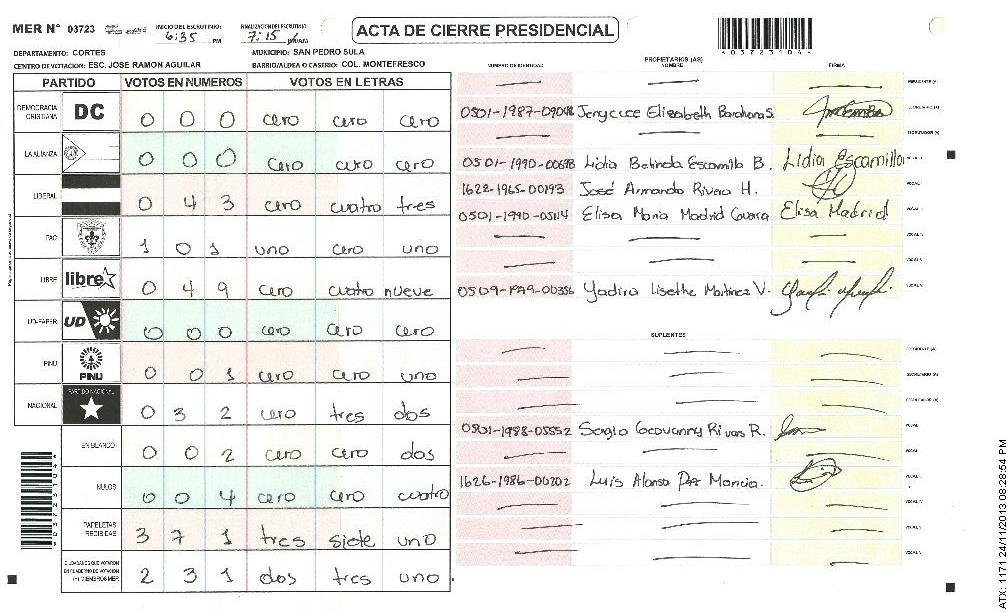 MER N° 03723
INICIO DEL ESCRUTINIO: 6:35 PM
FINALIZACION DEL ESCRUTINIO: 7:15 PM
ACTA DE CIERRE PRESIDENCIAL
037231044
DEPARTAMENTO: CORTES
MUNICIPIO: SAN PEDRO SULA
CENTRO DE VOTACION: ESC. JOSE RAMON AGUILAR
BARRIO/ALDEA O CASERIO: COL. MONTEFRESCO
PARTIDO VOTOS EN NUMEROS VOTOS EN LETRAS
DEMOCRACIA CRISTIANA DC 0 0 0 cero cero cero
LA ALIANZA 0 0 0 cero cero cero
LIBERAL 0 4 3 cero cuatro tres
PAC 1 0 1 uno cero uno
LIBRE libre 0 4 9 cero cuatro nueve
UD-FAPER UD 0 0 0 cero cero cero
PINU PINU 0 0 1 cero cero uno
NACIONAL PARTIDO NACIONAL 0 3 2 cero tres dos
EN BLANCO 0 0 2 cero cero dos
NULOS 0 0 4 cero cero cuatro
PAPELETAS RECIBIDAS 3 7 1 tres siete uno
CIUDADANOS QUE VOTARON EN CUADERNO DE VOTACION (+) MIEMBROS MER 2 3 1 dos tres uno
PROPIETARIOS (AS)
NUMERO DE IDENTIDAD NOMBRE FIRMA
PRESIDENTE (A)
Elizabeth Barahona S. SECRETARIO (A)
ESCRUTADOR (A)
Lidia Belinda Escamilla B. Lidia Escamilla
1622-1965-00193 José Armando Rivera H.
0501-1990-05114 Elisa Maria Madrid Elisa Madrid
Yadira Lisethe Martinez V.
SUPLENTES
PRESIDENTE (A)
SECRETARIO (A)
ESCRUTADOR (A)
0501-1988-05552 Sergio Geovanny Rivas R.
1626-1986-00202 Luis Alonso Paz Mancia.
ATX: 1171 24/11/2013 08:28:54 PM